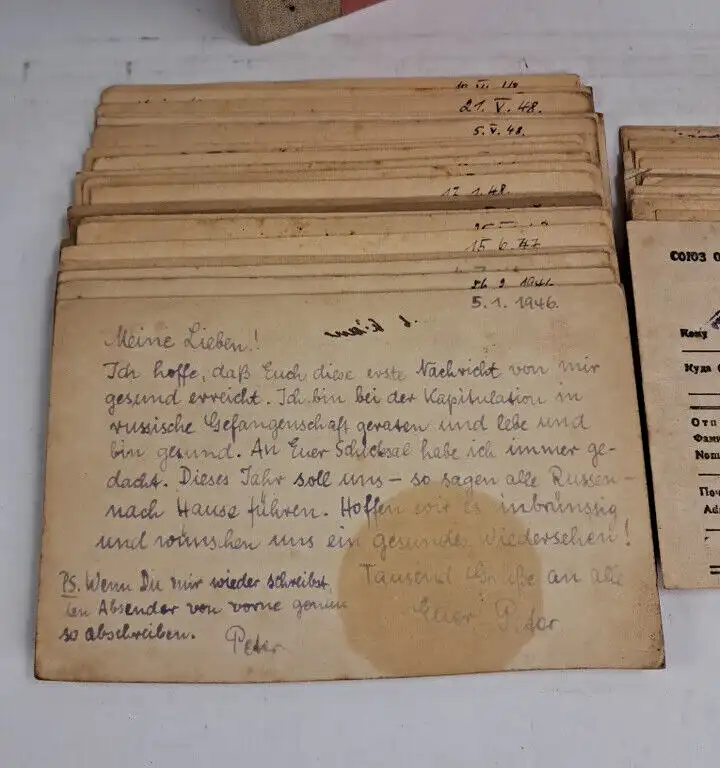 21. V. 48.
5. V. 48.
1. 48.
15. 6. 47
5. 1. 1946.
Meine Lieben!
Ich hoffe, daß Euch diese erste Nachricht von mir
gesund erreicht. Ich bin bei der Kapitulation in
russische Gefangenschaft geraten und lebe und
bin gesund. An Euer Schicksal habe ich immer ge-
dacht. Dieses Jahr soll uns – so sagen alle Russen –
nach Hause führen. Hoffen wir es inbrünstig
und wünschen uns ein gesundes Wiedersehen!
Tausend Grüße an alle
Euer Peter
PS. Wenn Du mir wieder schreibst,
den Absender von vorne genau
so abschreiben.
Peter
СОЮЗ О
Кому
Куда
Отп
Фами
Nom
Поч
Ad